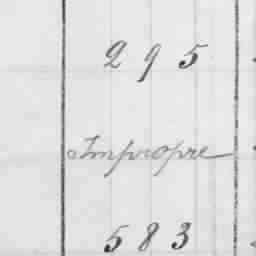 295
Impropre
583